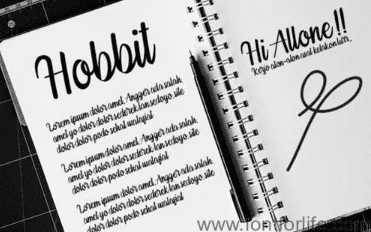 Hobbit
Lorem ipsum dolor amet. Angger ada salah,
amet yo dolor dolor sederek lan sedoyo, site
dolor dolor, podo sehat walafiat
Lorem ipsum dolor amet. Angger ada salah,
amet yo dolor dolor sederek lan sedoyo, site
dolor dolor, podo sehat walafiat
Lorem ipsum dolor amet. Angger ada salah,
amet yo dolor dolor sederek lan sedoyo, site
dolor dolor, podo sehat walafiat
Hi Allone !!
Kerjo alon-alon asal kelakon
www.fontforlife.com